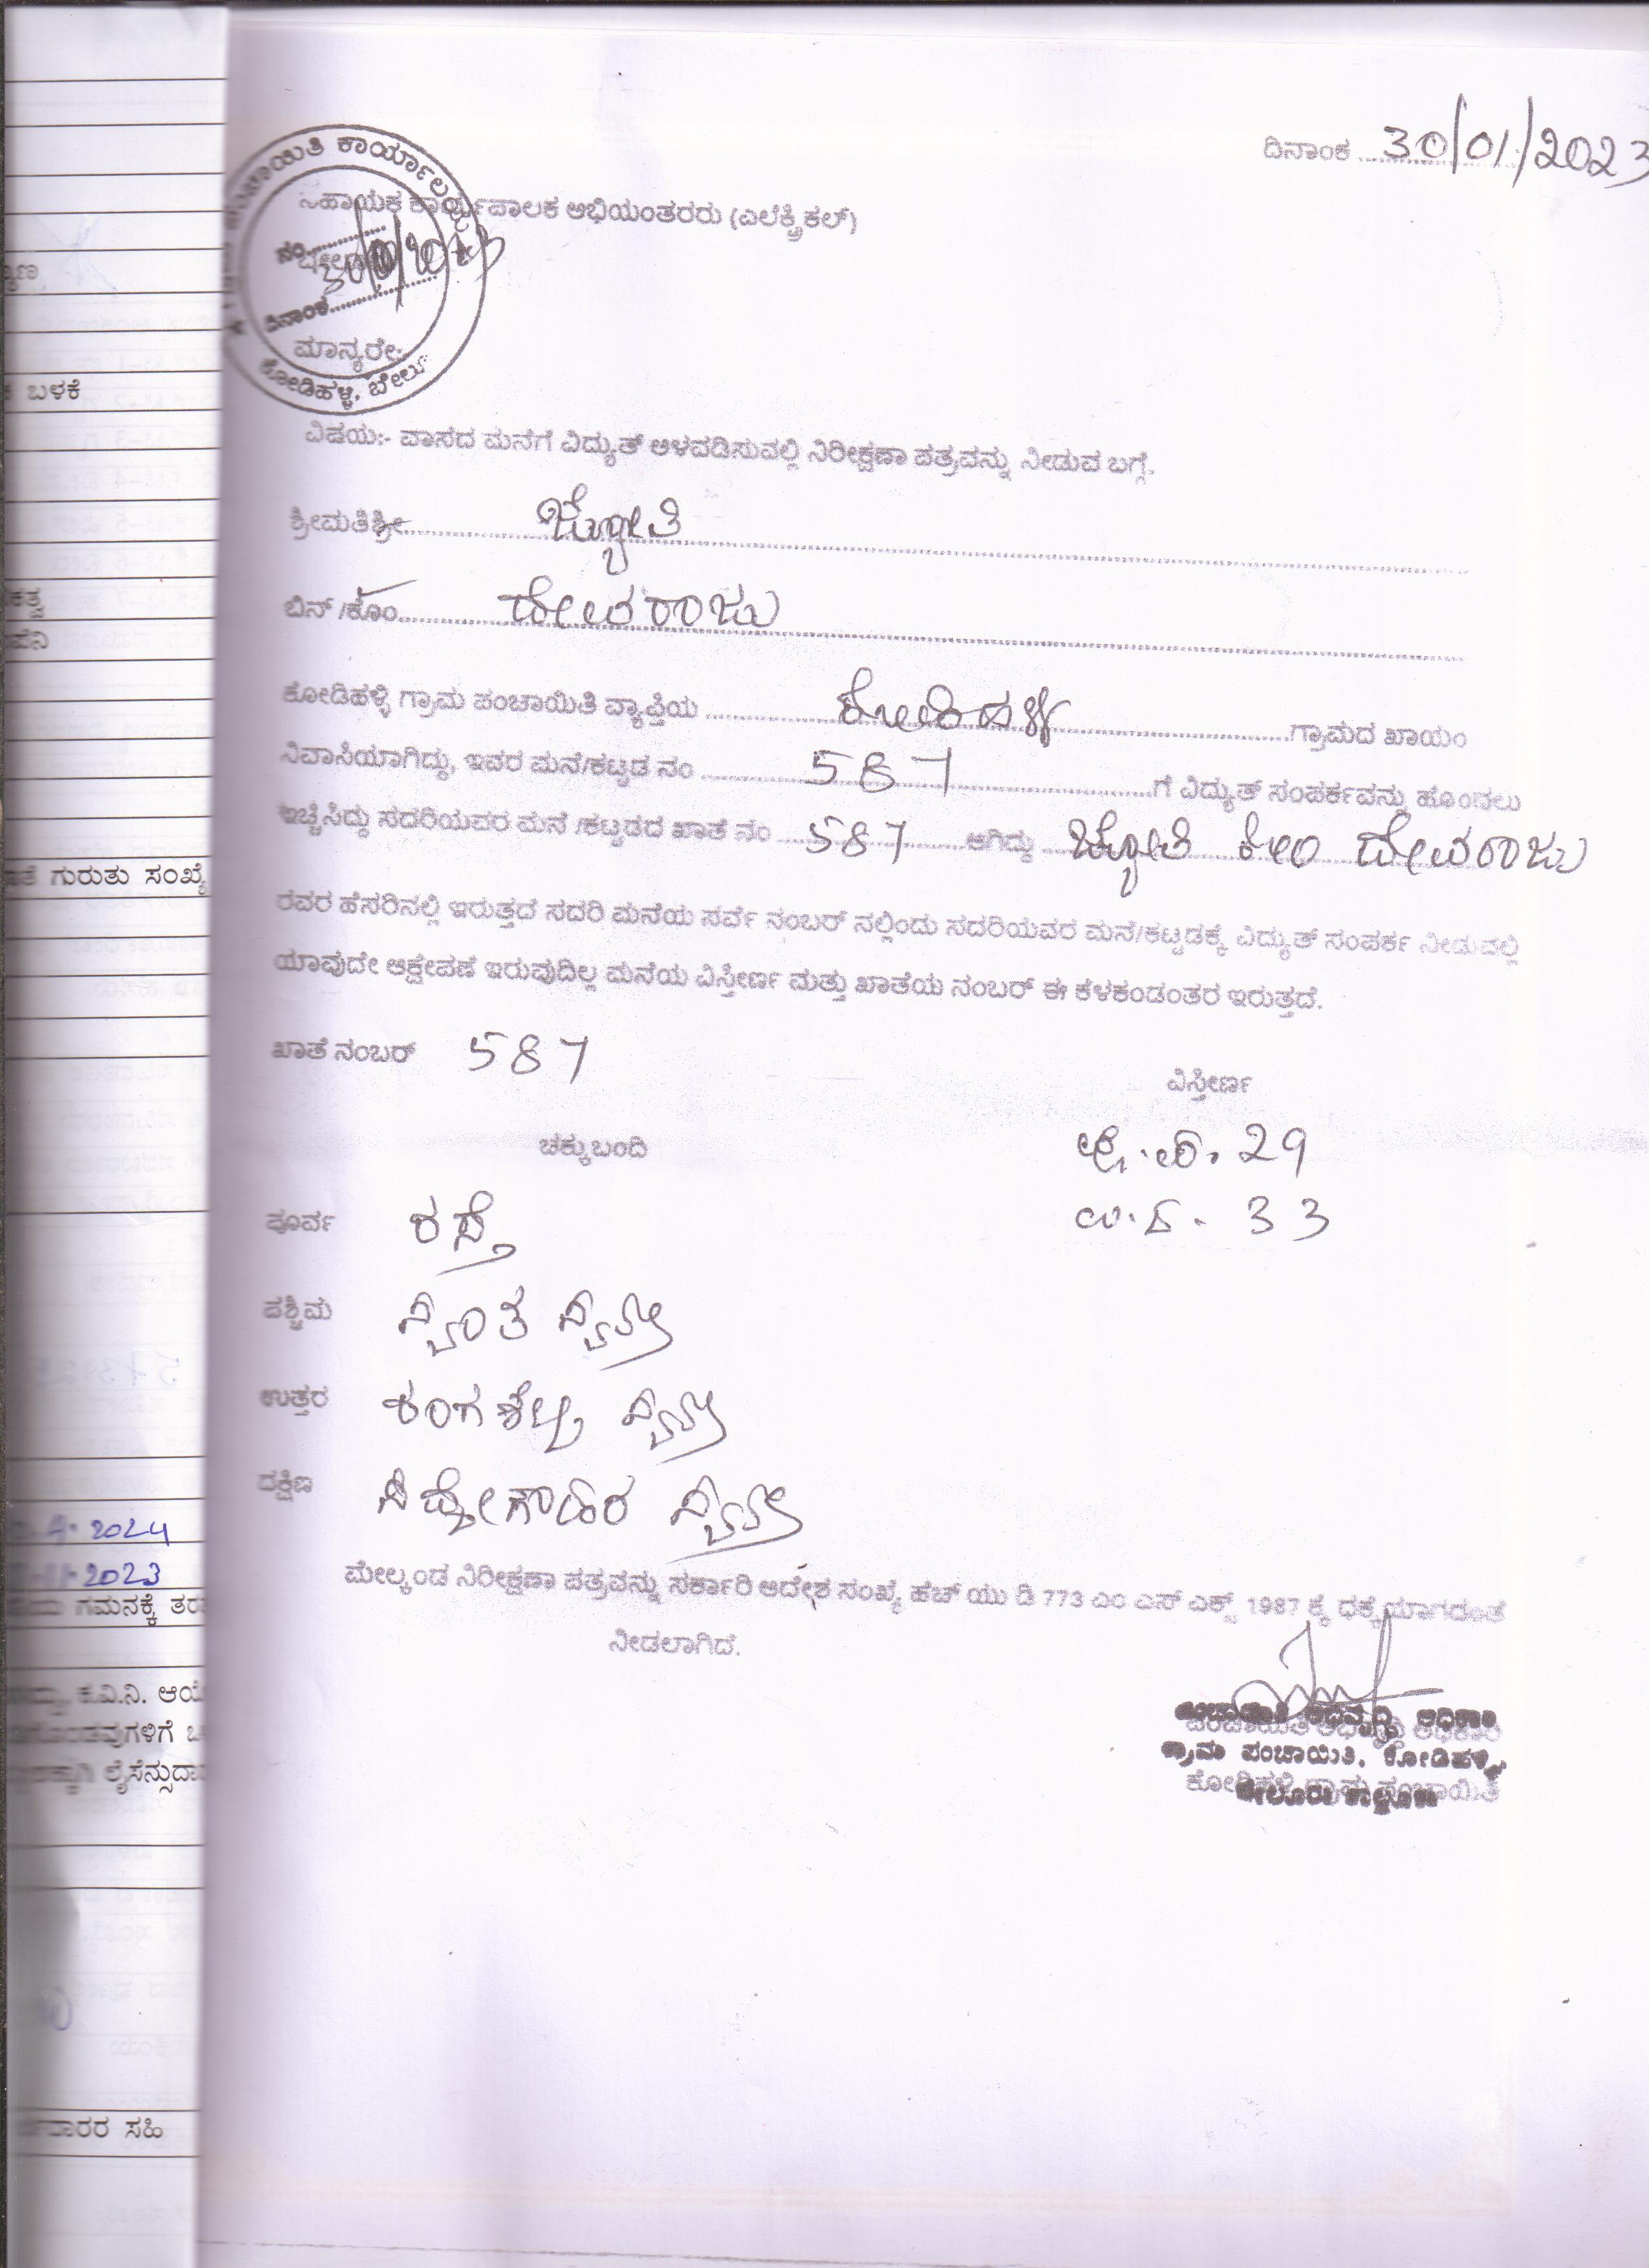 ದಿನಾಂಕ 30/01/2023
ಪಂಚಾಯಿತಿ ಕಾರ್ಯಾಲಯ
ಸಹಾಯಕ ಕಾರ್ಯಪಾಲಕ ಅಭಿಯಂತರರು (ಎಲೆಕ್ಟ್ರಿಕಲ್)
ನಂ
ದಿನಾಂಕ 30/01/2023
ಮಾನ್ಯರೇ:
ಕೋಡಿಹಳ್ಳಿ, ಬೇಲೂ
ವಿಷಯ:- ವಾಸದ ಮನೆಗೆ ವಿದ್ಯುತ್ ಅಳವಡಿಸುವಲ್ಲಿ ನಿರೀಕ್ಷಣಾ ಪತ್ರವನ್ನು ನೀಡುವ ಬಗ್ಗೆ.
ಶ್ರೀಮತಿಶ್ರೀ ಜ್ಯೋತಿ
ಬಿನ್ /ಕೊಂ ದೇವರಾಜು
ಕೋಡಿಹಳ್ಳಿ ಗ್ರಾಮ ಪಂಚಾಯಿತಿ ವ್ಯಾಪ್ತಿಯ ಕೋಡಿಹಳ್ಳಿ ಗ್ರಾಮದ ಖಾಯಂ
ನಿವಾಸಿಯಾಗಿದ್ದು, ಇವರ ಮನೆ/ಕಟ್ಟಡ ನಂ 587 ಗೆ ವಿದ್ಯುತ್ ಸಂಪರ್ಕವನ್ನು ಹೊಂದಲು
ಇಚ್ಚಿಸಿದ್ದು ಸದರಿಯವರ ಮನೆ /ಕಟ್ಟಡದ ಖಾತೆ ನಂ 587 ಆಗಿದ್ದು ಜ್ಯೋತಿ ಕೋಂ ದೇವರಾಜು
ರವರ ಹೆಸರಿನಲ್ಲಿ ಇರುತ್ತದೆ ಸದರಿ ಮನೆಯ ಸರ್ವೆ ನಂಬರ್ ನಲ್ಲಿಂದು ಸದರಿಯವರ ಮನೆ/ಕಟ್ಟಡಕ್ಕೆ ವಿದ್ಯುತ್ ಸಂಪರ್ಕ ನೀಡುವಲ್ಲಿ
ಯಾವುದೇ ಆಕ್ಷೇಪಣೆ ಇರುವುದಿಲ್ಲ ಮನೆಯ ವಿಸ್ತೀರ್ಣ ಮತ್ತು ಖಾತೆಯ ನಂಬರ್ ಈ ಕೆಳಕಂಡಂತರ ಇರುತ್ತದೆ.
ಖಾತೆ ನಂಬರ್ 587
ವಿಸ್ತೀರ್ಣ
ಚಕ್ಕುಬಂದಿ
ಪೂ.ಪ. 29
ಪೂರ್ವ ರಸ್ತೆ
ಉ.ದ. 33
ಪಶ್ಚಿಮ ಸ್ವಂತ ಸ್ವತ್ತು
ಉತ್ತರ ರಂಗಶೆಟ್ಟಿ ಸ್ವತ್ತು
ದಕ್ಷಿಣ ಸಿದ್ದೇಗೌಡರ ಸ್ವತ್ತು
ಮೇಲ್ಕಂಡ ನಿರೀಕ್ಷಣಾ ಪತ್ರವನ್ನು ಸರ್ಕಾರಿ ಆದೇಶ ಸಂಖ್ಯೆ ಹೆಚ್ ಯು ಡಿ 773 ಎಂ ಎಸ್ ಎಕ್ಸ್ 1987 ಕ್ಕೆ ಧಕ್ಕೆಯಾಗದಂತೆ
ನೀಡಲಾಗಿದೆ.
ಪಂಚಾಯಿತಿ ಅಭಿವೃದ್ಧಿ ಅಧಿಕಾರಿ
ಗ್ರಾಮ ಪಂಚಾಯಿತಿ, ಕೋಡಿಹಳ್ಳಿ
ಕೋಡಿಹಳ್ಳಿ ಗ್ರಾಮ ಪಂಚಾಯಿತಿ
ಬೇಲೂರು ತಾಲ್ಲೂಕು
ಬಳಕೆ
ಗುರುತು ಸಂಖ್ಯೆ
2024
2023
ಗಮನಕ್ಕೆ
ಕ.ವಿ.ನಿ.
ಸಹಿ